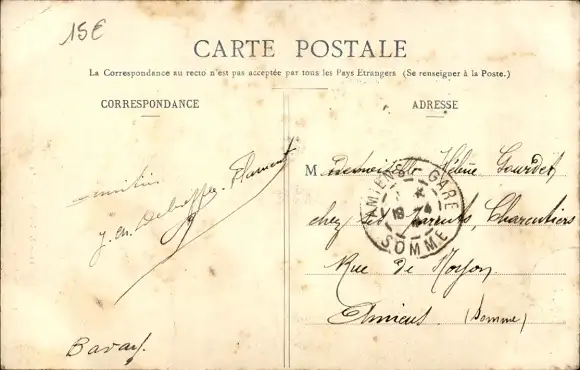 15€
CARTE POSTALE
La Correspondance au recto n'est pas acceptée par tous les Pays Etrangers (Se renseigner à la Poste.)
CORRESPONDANCE
ADRESSE
Mademoiselle Hélène Gourdet
chez ses parents, Charcutiers
Rue de Noyon
Amiens (Somme)
AMIENS - GARE
SOMME
Bavay.